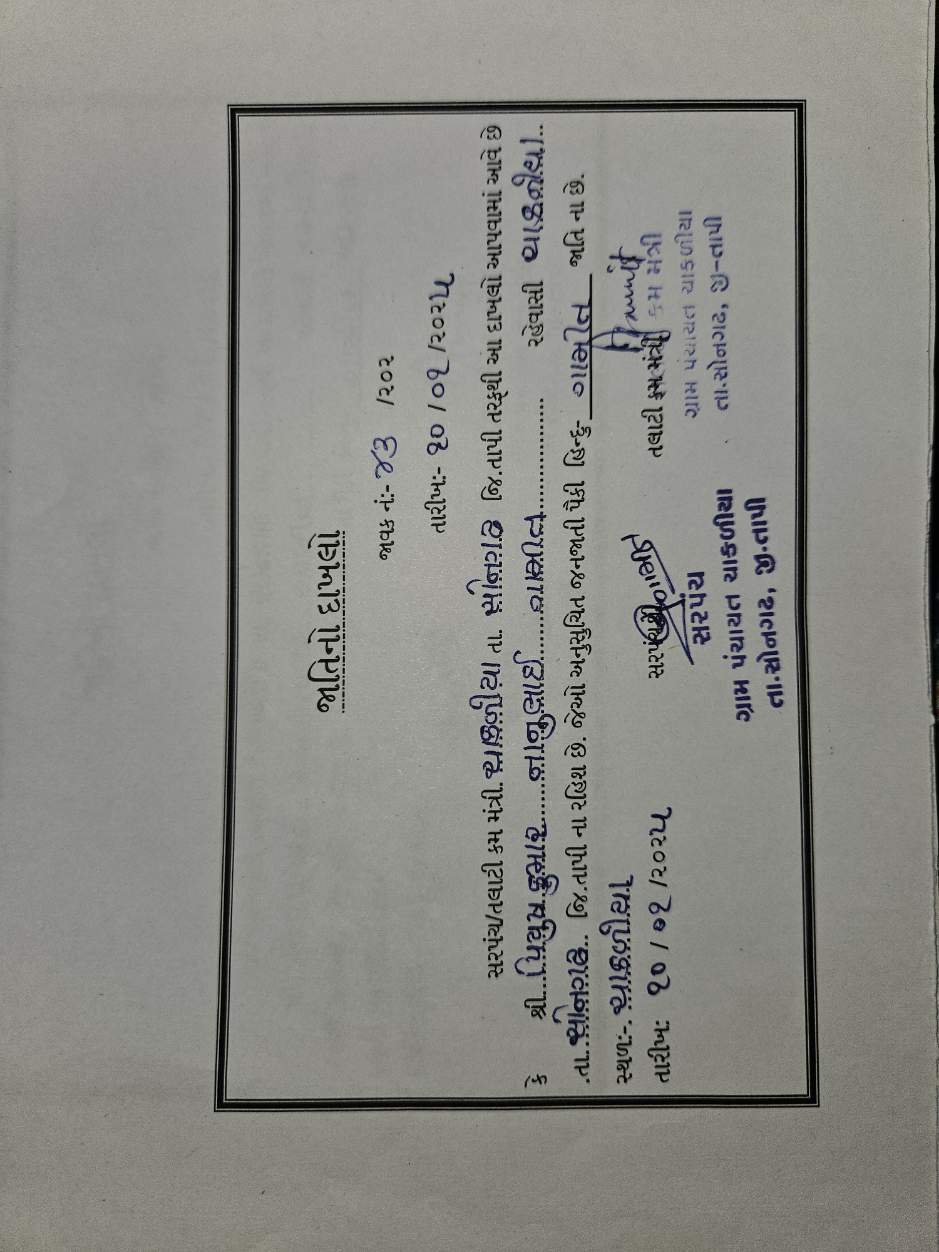 જાતિનો દાખલો
જાવક નં:- ૪૩ /૨૦૨
તારીખ:- ૧૦/૦૧/૨૦૨૫
સરપંચ/તલાટી કમ મંત્રી. ચાકળીયા તા. સોનગઢ જિ.તાપી તરફથી આ દાખલો આપવામાં આવે છે
કે શ્રી.... પિયુષકુમાર ..... બાબુભાઈ ..... ગામીત ............... રહેવાસી ચાકળીયા..
તા. સોનગઢ.. જિ.તાપી ના રહિશ છે. જેઓ અનુસુચિત જનજાતી પૈકી હિન્દુ- ગામીત જાતિ ના છે.
સ્થળ:- ચાકળીયા
તારીખ: ૧૦/૦૧/૨૦૨૫
સરપંચશ્રી
સરપંચ
ગ્રામ પંચાયત ચાકળીયા
તા.સોનગઢ, જી.તાપી
તલાટી કમ મંત્રી
ગ્રામ પંચાયત ચાકળીયા
તા.સોનગઢ, જી-તાપી